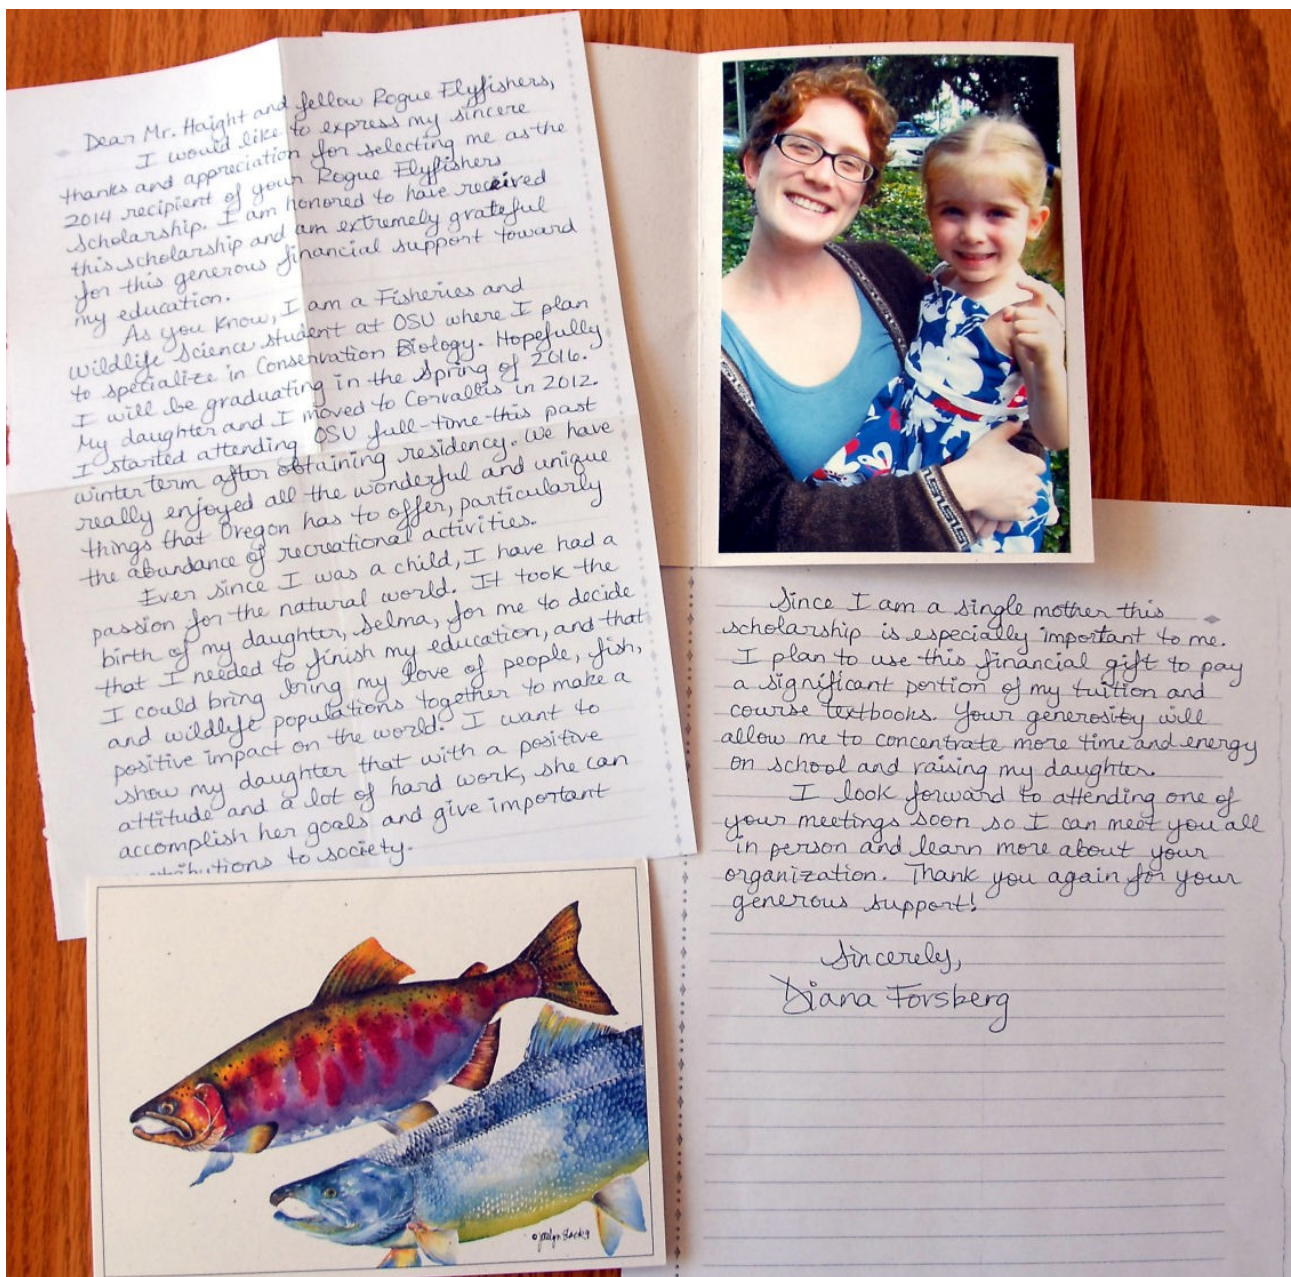 Dear Mr. Haight and fellow Rogue Flyfishers,
I would like to express my sincere
thanks and appreciation for selecting me as the
2014 recipient of your Rogue Flyfishers
scholarship. I am honored to have received
this scholarship and am extremely grateful
for this generous financial support toward
my education.
As you know, I am a Fisheries and
Wildlife Science student at OSU where I plan
to specialize in Conservation Biology. Hopefully
I will be graduating in the Spring of 2016.
My daughter and I moved to Corvallis in 2012.
I started attending OSU full-time this past
winter term after obtaining residency. We have
really enjoyed all the wonderful and unique
things that Oregon has to offer, particularly
the abundance of recreational activities.
Ever since I was a child, I have had a
passion for the natural world. It took the
birth of my daughter, Selma, for me to decide
that I needed to finish my education, and that
I could bring bring my love of people, fish,
and wildlife populations together to make a
positive impact on the world. I want to
show my daughter that with a positive
attitude and a lot of hard work, she can
accomplish her goals and give important
contributions to society.
Since I am a single mother this
scholarship is especially important to me.
I plan to use this financial gift to pay
a significant portion of my tuition and
course textbooks. Your generosity will
allow me to concentrate more time and energy
on school and raising my daughter.
I look forward to attending one of
your meetings soon so I can meet you all
in person and learn more about your
organization. Thank you again for your
generous support!
Sincerely,
Diana Forsberg